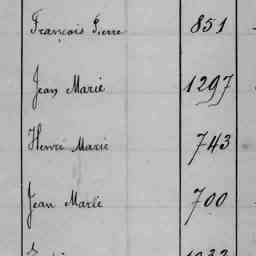 François Pierre 851
Jean Marie 1297
Henri Marie 743
Jean Marie 700